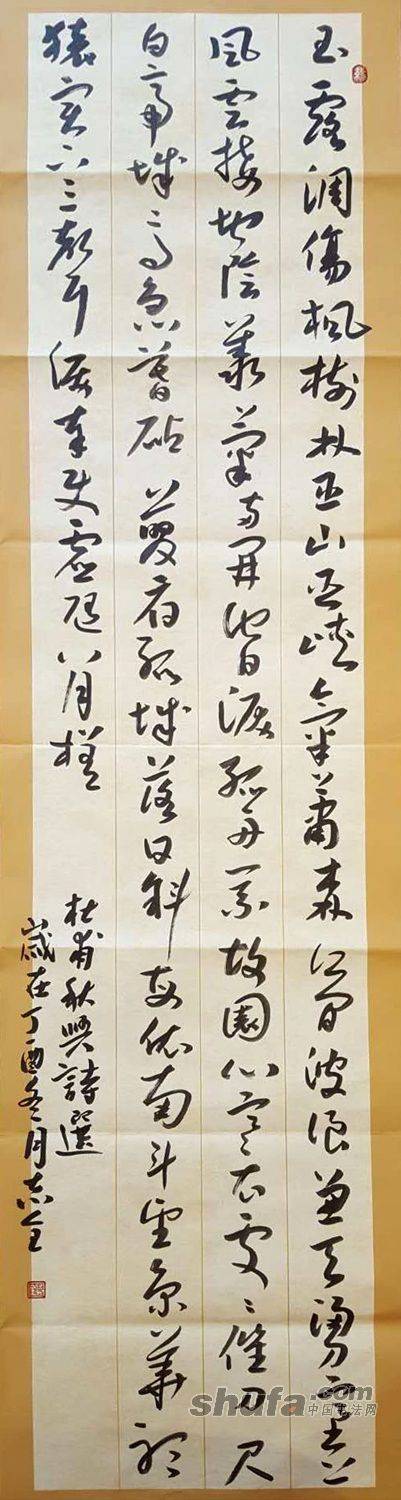 玉露凋傷楓樹林巫山巫峽氣蕭森江間波浪兼天湧塞上
風雲接地陰叢菊兩開他日淚孤舟一系故園心寒衣處〻催刀尺
白帝城高急暮砧夔府孤城落日斜每依南斗望京華聽
猿實下三聲淚奉使虛隨八月槎
杜甫秋興詩選
歲在丁酉冬月志全
shufa.com
中国书法网